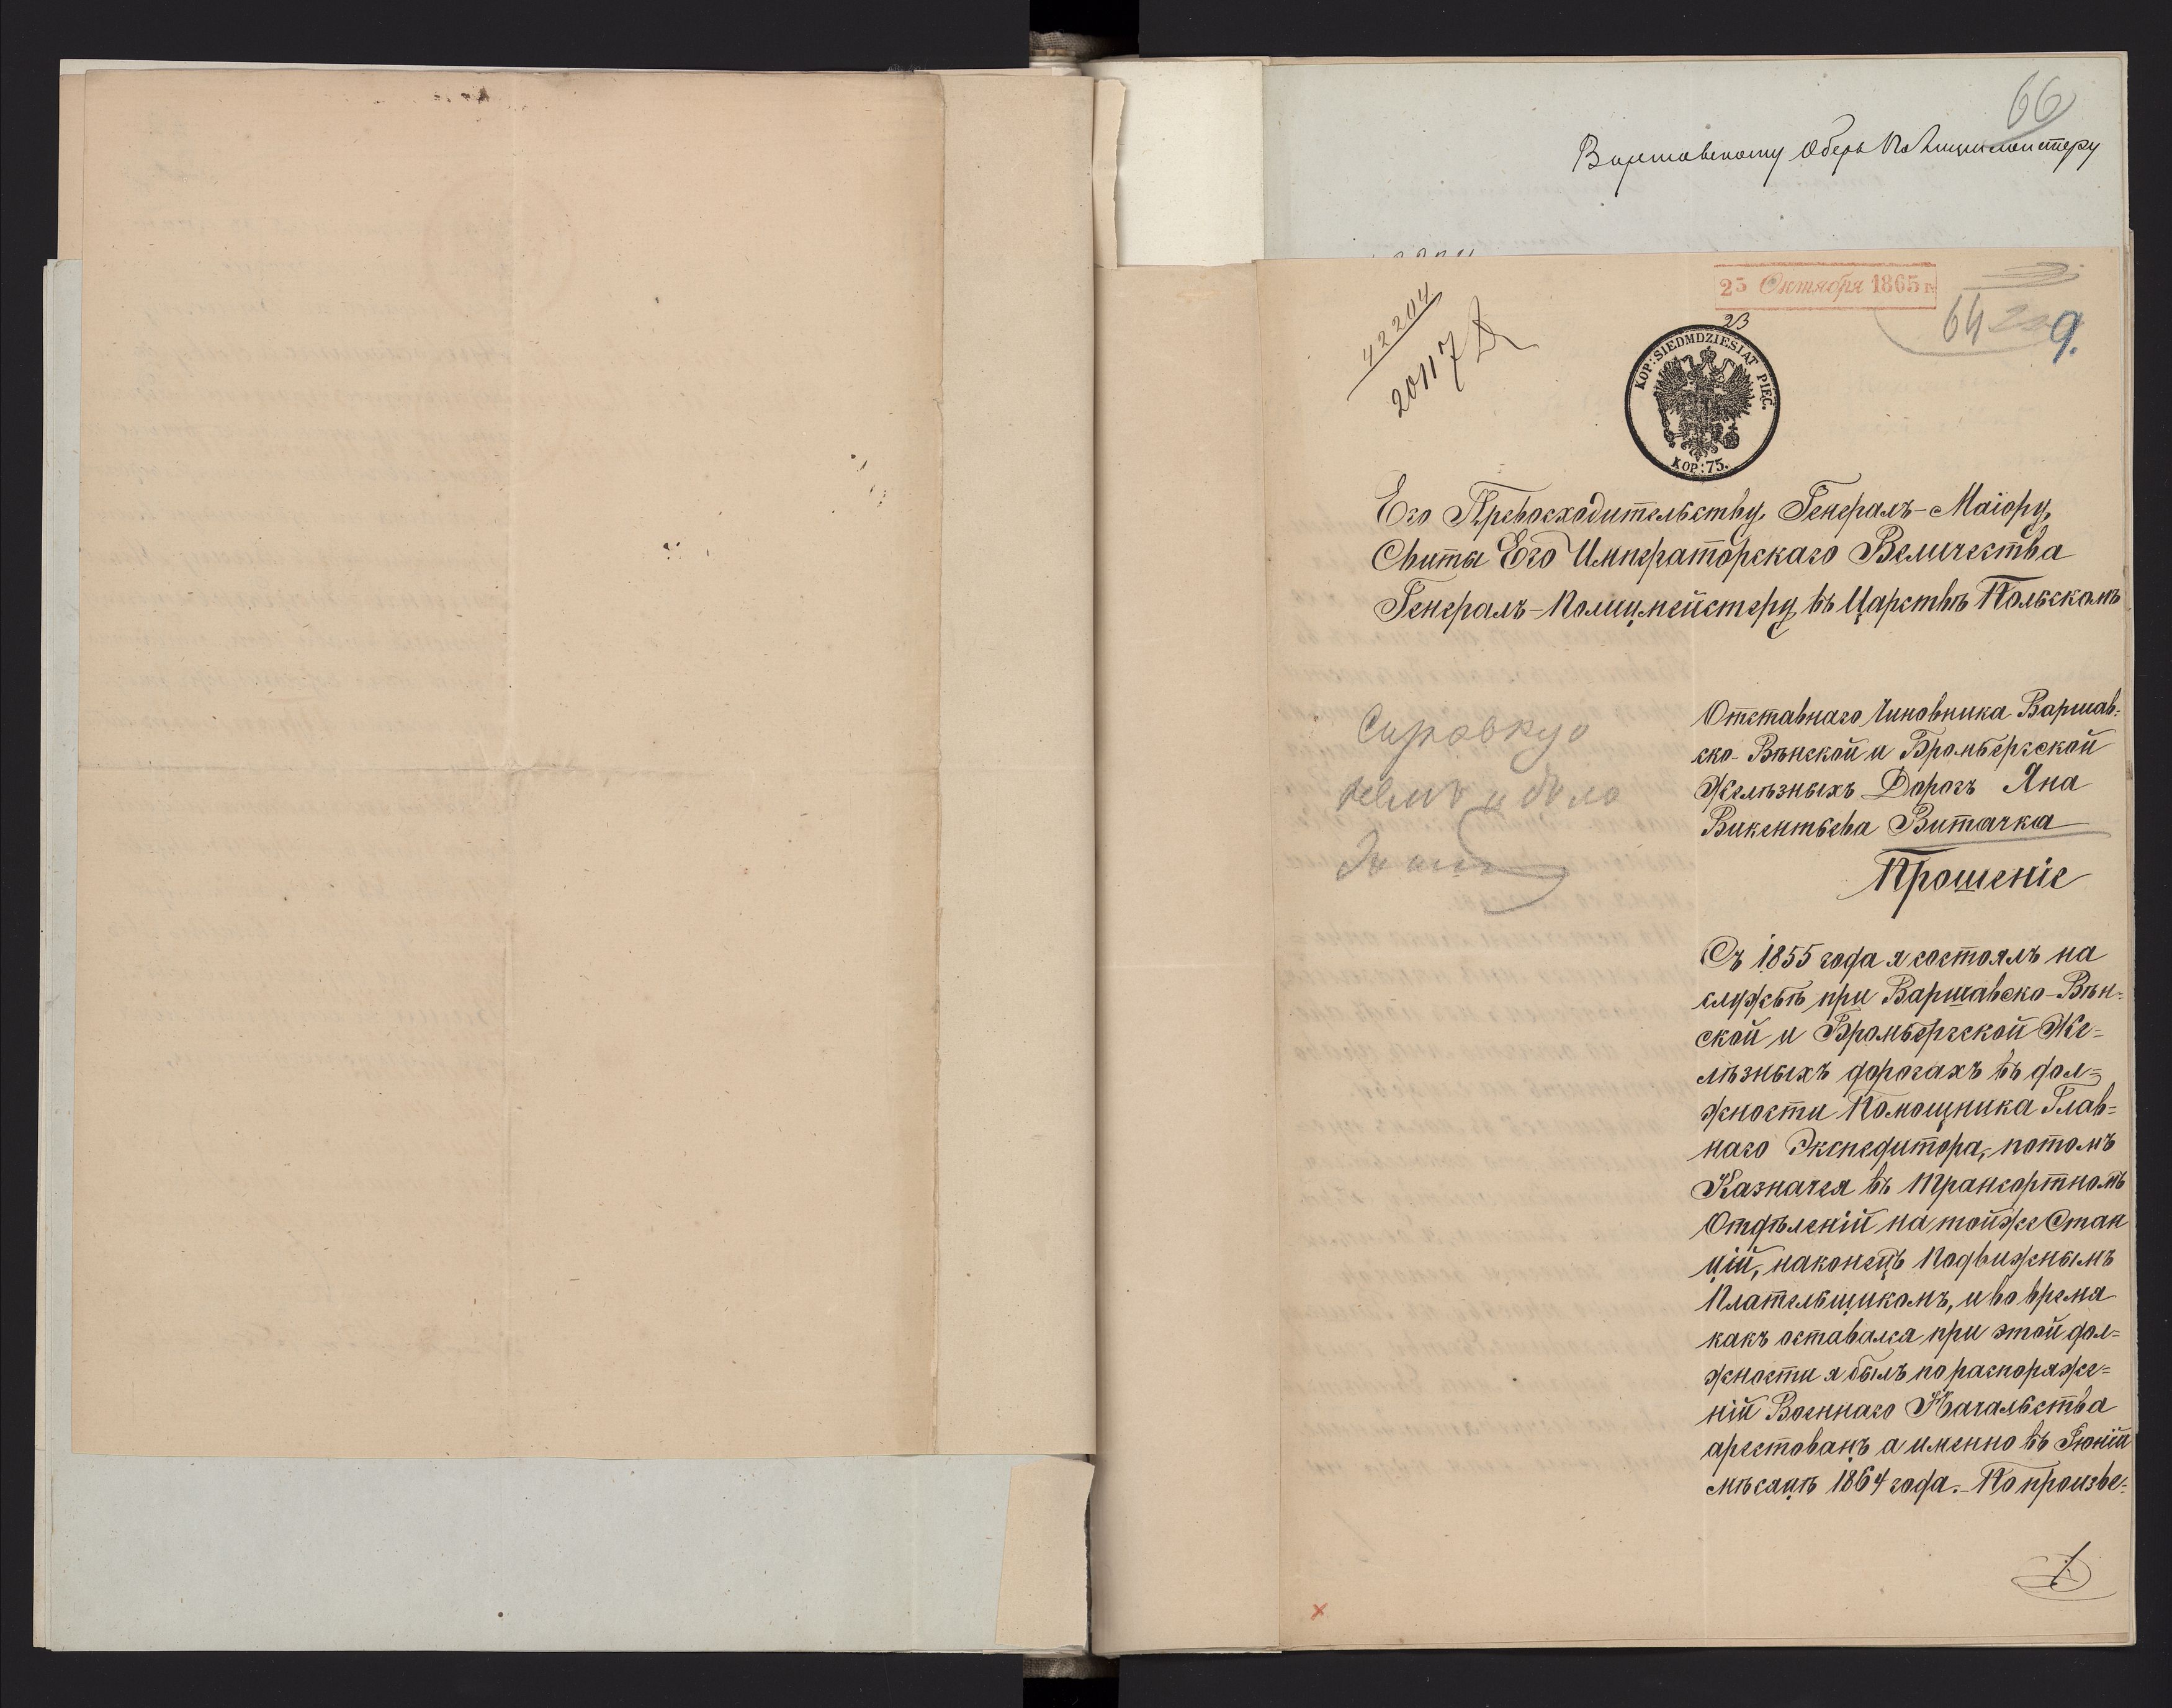 66
Варшавскому Оберъ Полицiймейстеру
25 Октября 1865 г.
23
64
9.
42204
20117
KOP: SIEDMDZIESIAT PIĘĆ.
KOP: 75.
Его Превосходительству, Генералъ-Маіору,
Свиты Его Императорскаго Величества
Генералъ-Полицмейстеру въ Царствѣ Польскомъ
Справку о
немъ и дѣло
Отставнаго Чиновника Варшав=
ско-Вѣнской и Бромбергской
Желѣзныхъ Дорогъ Яна
Викентьева Витачка
Прошеніе
Съ 1855 года я состоялъ на
службѣ при Варшавско-Вѣн=
ской и Бромбергской Же=
лѣзныхъ дорогахъ въ дол=
жности Помощника Глав=
наго Экспедитора, потомъ
Казначея въ Трансортномъ
Отдѣленій на тойже Стан
цій, наконецъ Подвижнымъ
Плательщикомъ, и во время
какъ оставался при этой дол=
жности я былъ по распоряже=
ній Военнаго Начальства
арестованъ а именно въ Іюніи
мѣсяцѣ 1864 года.- По произве=